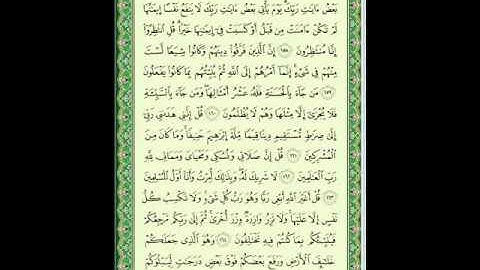 بَعْضُ ءَايَٰتِ رَبِّكَ يَوْمَ يَأْتِي بَعْضُ ءَايَٰتِ رَبِّكَ لَا يَنفَعُ نَفْسًا إِيمَٰنُهَا
لَمْ تَكُنْ ءَامَنَتْ مِن قَبْلُ أَوْ كَسَبَتْ فِىٓ إِيمَٰنِهَا خَيْرًا قُلِ ٱنتَظِرُوٓا۟
إِنَّا مُنتَظِرُونَ ١٥٨ إِنَّ ٱلَّذِينَ فَرَّقُوا۟ دِينَهُمْ وَكَانُوا۟ شِيَعًا لَّسْتَ
مِنْهُمْ فِى شَىْءٍ إِنَّمَآ أَمْرُهُمْ إِلَى ٱللَّهِ ثُمَّ يُنَبِّئُهُم بِمَا كَانُوا۟ يَفْعَلُونَ
١٥٩ مَن جَآءَ بِٱلْحَسَنَةِ فَلَهُۥ عَشْرُ أَمْثَالِهَا وَمَن جَآءَ بِٱلسَّيِّئَةِ
فَلَا يُجْزَىٰٓ إِلَّا مِثْلَهَا وَهُمْ لَا يُظْلَمُونَ ١٦٠ قُلْ إِنَّنِى هَدَىٰنِى رَبِّىٓ
إِلَىٰ صِرَٰطٍ مُّسْتَقِيمٍ دِينًا قِيَمًا مِّلَّةَ إِبْرَٰهِيمَ حَنِيفًا وَمَا كَانَ مِنَ
ٱلْمُشْرِكِينَ ١٦١ قُلْ إِنَّ صَلَاتِى وَنُسُكِى وَمَحْيَاىَ وَمَمَاتِى لِلَّهِ
رَبِّ ٱلْعَٰلَمِينَ ١٦٢ لَا شَرِيكَ لَهُۥ وَبِذَٰلِكَ أُمِرْتُ وَأَنَا۠ أَوَّلُ ٱلْمُسْلِمِينَ
١٦٣ قُلْ أَغَيْرَ ٱللَّهِ أَبْغِى رَبًّا وَهُوَ رَبُّ كُلِّ شَىْءٍ وَلَا تَكْسِبُ كُلُّ
نَفْسٍ إِلَّا عَلَيْهَا وَلَا تَزِرُ وَازِرَةٌ وِزْرَ أُخْرَىٰ ثُمَّ إِلَىٰ رَبِّكُم مَّرْجِعُكُمْ
فَيُنَبِّئُكُم بِمَا كُنتُمْ فِيهِ تَخْتَلِفُونَ ١٦٤ وَهُوَ ٱلَّذِى جَعَلَكُمْ
خَلَٰٓئِفَ ٱلْأَرْضِ وَرَفَعَ بَعْضَكُمْ فَوْقَ بَعْضٍ دَرَجَٰتٍ لِّيَبْلُوَكُمْ